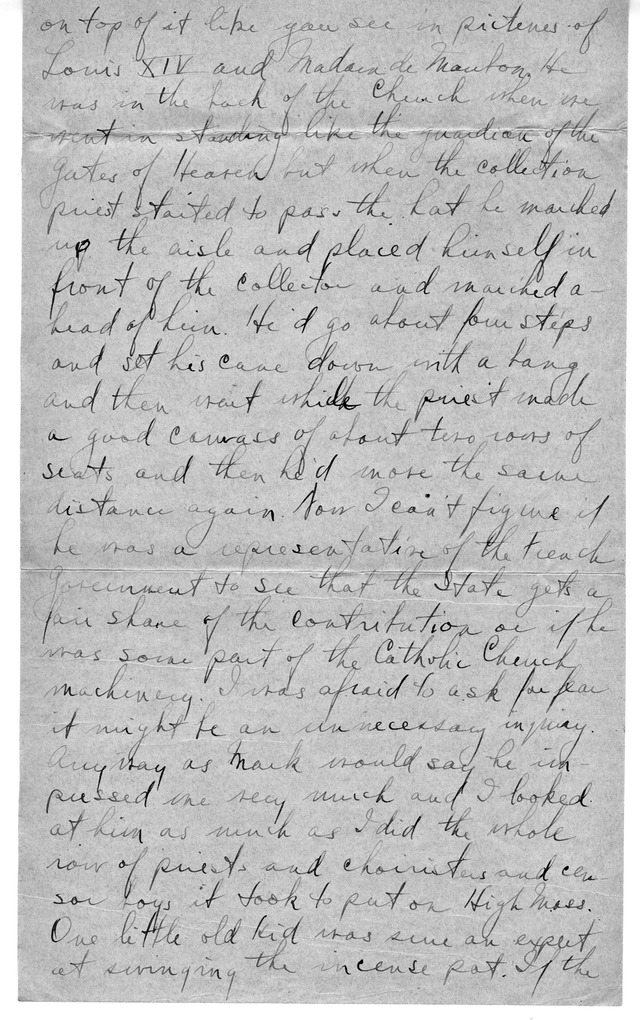 on top of it like you see in pictures of
Louis XIV and Madam de Mauton. He
was in the back of the Church when we
went in standing like the guardian of the
Gates of Heaven but when the collection
priest started to pass the hat he marched
up the aisle and placed himself in
front of the collector and marched a-
head of him. He'd go about four steps
and set his cane down with a bang
and then wait while the priest made
a good canvass of about two rows of
seats and then he'd move the same
distance again. Now I can't figure if
he was a representative of the French
Government to see that the State gets a
fair share of the contribution or if he
was some part of the Catholic Church
machinery. I was afraid to ask for fear
it might be an unnecessary inquiry.
Anyway as Mark would say he im-
pressed me very much and I looked
at him as much as I did the whole
row of priests and choiristers and cen-
sor boys it took to put on High Mass.
One little old kid was sure an expert
at swinging the incense pot. If the